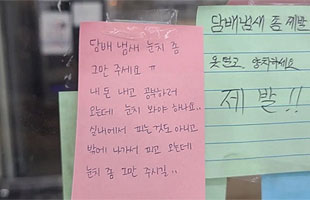 담배 냄새 눈치 좀
그만 주세요 ㅠ
내 돈 내고 공부하러
오는데 눈치 봐야 하나요..
실내에서 피는것도 아니고
밖에 나가서 피고 오는데
눈치 좀 그만 주시길..
담배냄새 좀 제발
양치하세요
제발!!